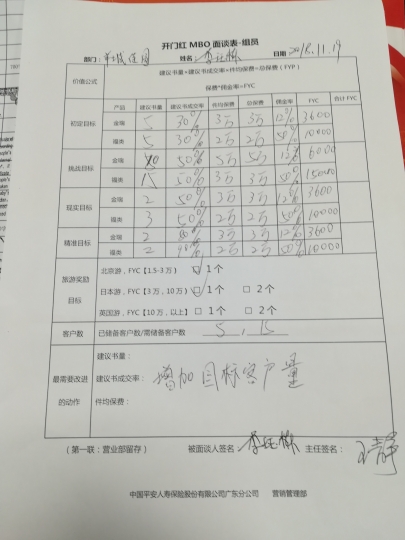 开门红 MBO 面谈表-组员
部门： 姓名： 日期 2018.11.19
价值公式 建议书量×建议书成交率×件均保费=总保费（FYP）
保费*佣金率=FYC
产品 建议书量 建议书成交率 件均保费 总保费 佣金率 FYC 合计 FYC
初定目标 金瑞 5 30% 3万 3万 12% 3600
福类 5 30% 2万 2万 50% 10000
挑战目标 金瑞 10 50% 5万 5万 12% 6000
福类 15 50% 3万 3万 50% 15000
现实目标 金瑞 2 50% 3万 3万 12% 3600
福类 3 50% 2万 2万 50% 10000
精准目标 金瑞 2 3万 3万 12% 3600
福类 2 2万 2万 50% 10000
旅游奖励目标 北京游，FYC【1.5-3 万】 ☑ 1 个
日本游，FYC【3 万，10 万） □ 1 个 □ 2 个
英国游，FYC【10 万，以上】 □ 1 个 □ 2 个
客户数 已储备客户数/需储备客户数 5 , 15
最需要改进的动作 建议书量：
建议书成交率： 增加目标客户量
件均保费：
（第一联：营业部留存） 被面谈人签名： 主任签名：
中国平安人寿保险股份有限公司广东分公司 营销管理部